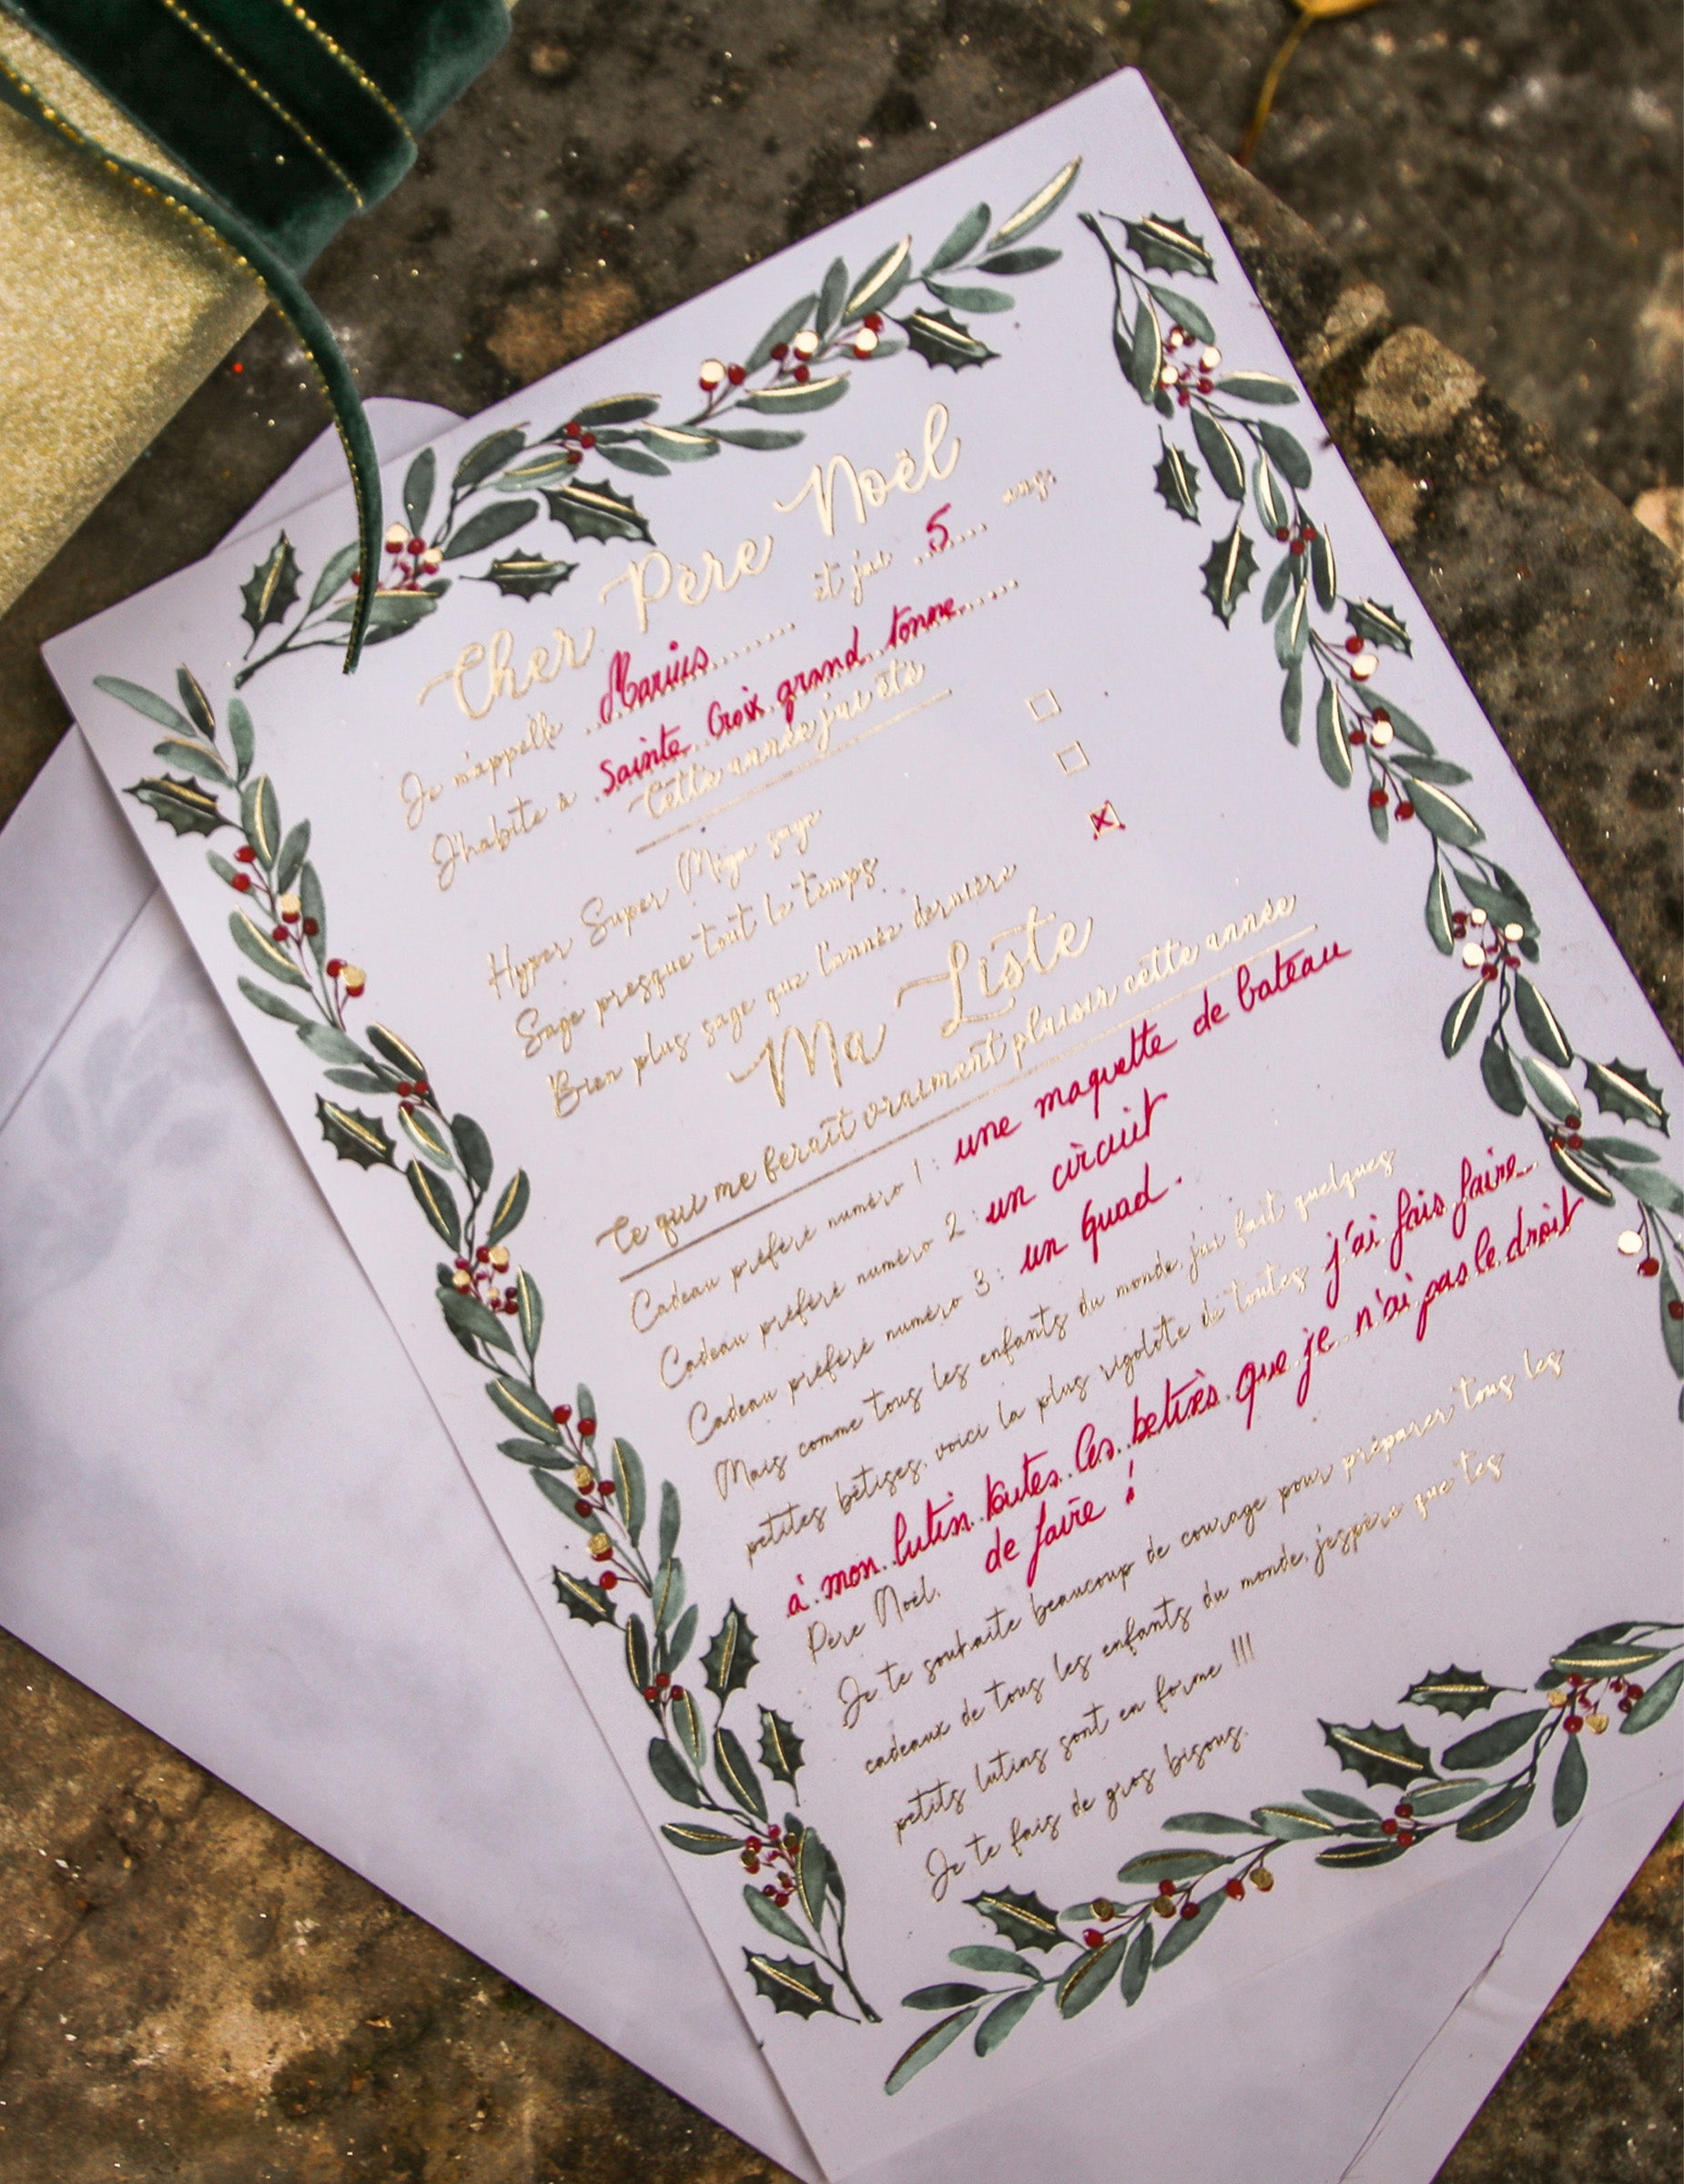 Cher Père Noël
Je m'appelle Marius et j'ai 5 ans.
J'habite à Sainte Croix grand tonne
Cette année j'ai été
Hyper Super Méga sage
Sage presque tout le temps
Bien plus sage que l'année dernière X
Ma Liste
Ce qui me ferait vraiment plaisir cette année
Cadeau préféré numéro 1 : une maquette de bateau
Cadeau préféré numéro 2 : un circuit
Cadeau préféré numéro 3 : un quad.
Mais comme tous les enfants du monde, j'ai fait quelques
petites bêtises, voici la plus rigolote de toutes j'ai fais faire
à mon lutin toutes les betises que je n'ai pas le droit
de faire !
Père Noël,
Je te souhaite beaucoup de courage pour préparer tous les
cadeaux de tous les enfants du monde, j'espère que tes
petits lutins sont en forme !!!
Je te fais de gros bisous.